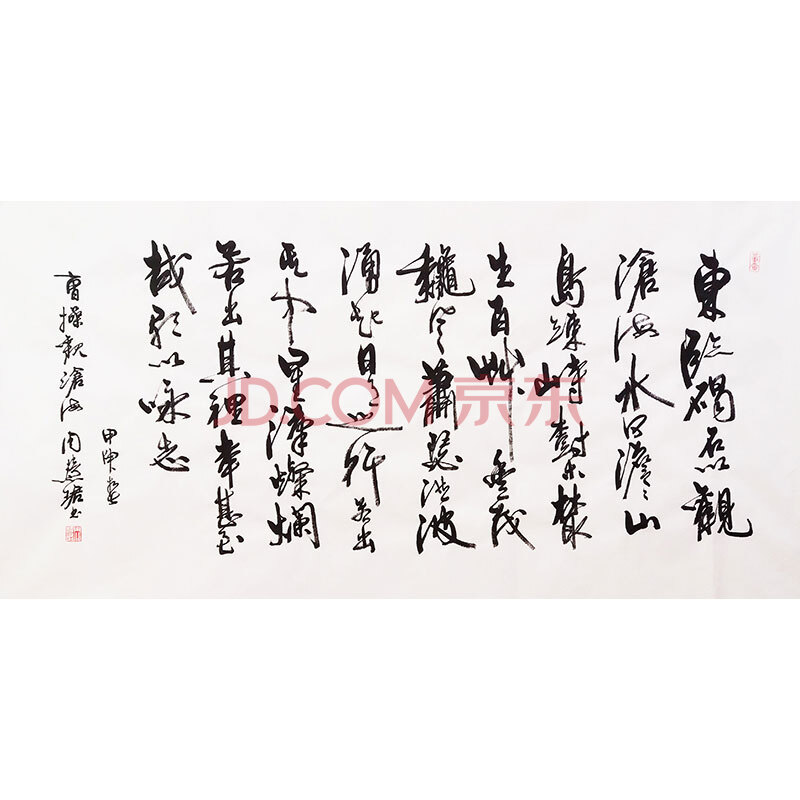 東臨碣石以觀
滄海水何澹々山
島竦峙樹木叢
生百艸豐茂
龝風蕭瑟洪波
湧起日月之行若出
其中星漢燦爛
若出其裡幸甚至
哉歌以詠志
甲申
曹操觀滄海周慧珺書
JD.COM 京东